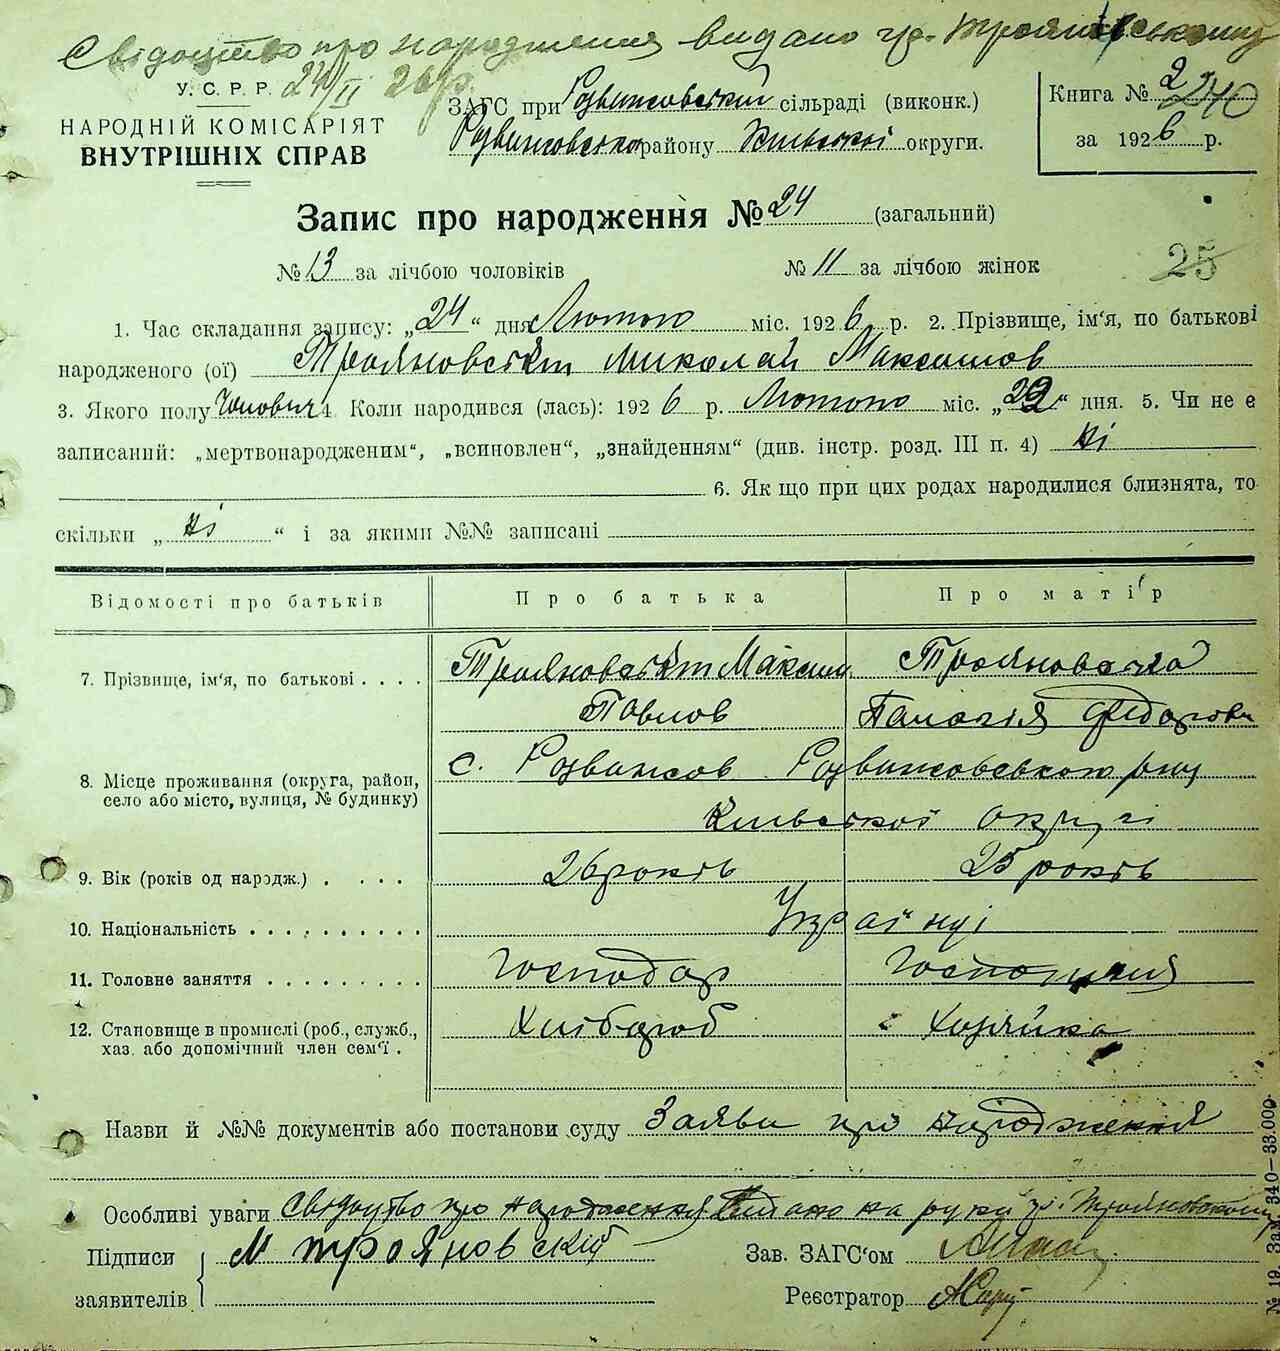 Свідоцтво про народження видано гр. Трояновському
24/II 26 р.
У. С. Р. Р.
НАРОДНІЙ КОМІСАРІЯТ
ВНУТРІШНІХ СПРАВ
ЗАГС при Розважовській сільраді (виконк.)
Розважовського району Київської округи.
Книга № 2
240
за 1926 р.
Запис про народження № 24 (загальний)
№ 13 за лічбою чоловіків № 11 за лічбою жінок
25
1. Час складання запису: „24“ дня Лютого міс. 1926 р. 2. Прізвище, ім'я, по батькові
народженого (ої) Трояновський Миколай Максимов
3. Якого полу Чоловіч 4. Коли народився (лась): 1926 р. Лютого міс. „22“ дня. 5. Чи не є
записаний: „мертвонародженим“, „всиновлен“, „знайденням“ (див. інстр. розд. III п. 4) ні
6. Як що при цих родах народилися близнята, то
скільки „ні“ і за якими №№ записані
Відомості про батьків Про батька Про матір
7. Прізвище, ім'я, по батькові . . . . Трояновський Максим Трояновська
Павлов Палагія Федорова
8. Місце проживання (округа, район,
село або місто, вулиця, № будинку) с. Розважов Розважовського р-ну
Київської округи
9. Вік (років од народж.) . . . . 26 років 25 років
10. Національність . . . . . . . . . . Українці
11. Головне заняття . . . . . . . . . Господар
12. Становище в промислі (роб., служб.,
хаз. або допомічний член сем'ї . Хлібороб Хозяйка
Назви й №№ документів або постанови суду Заява про народження
Особливі уваги Свідоцтво про народження видано на руки гр. Трояновському
Підписи
заявителів М Трояновский
Зав. ЗАГС'ом
Реєстратор
№ 19. Зак. 340—33.000.